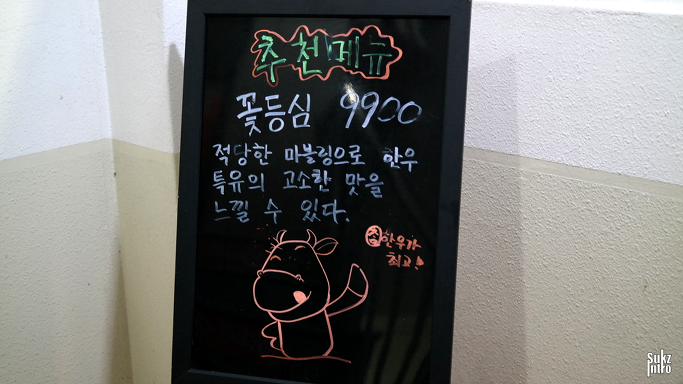 추천메뉴
꽃등심 9900
적당한 마블링으로 한우
특유의 고소한 맛을
느낄 수 있다.
참한우가
최고!
Sukz
Intro